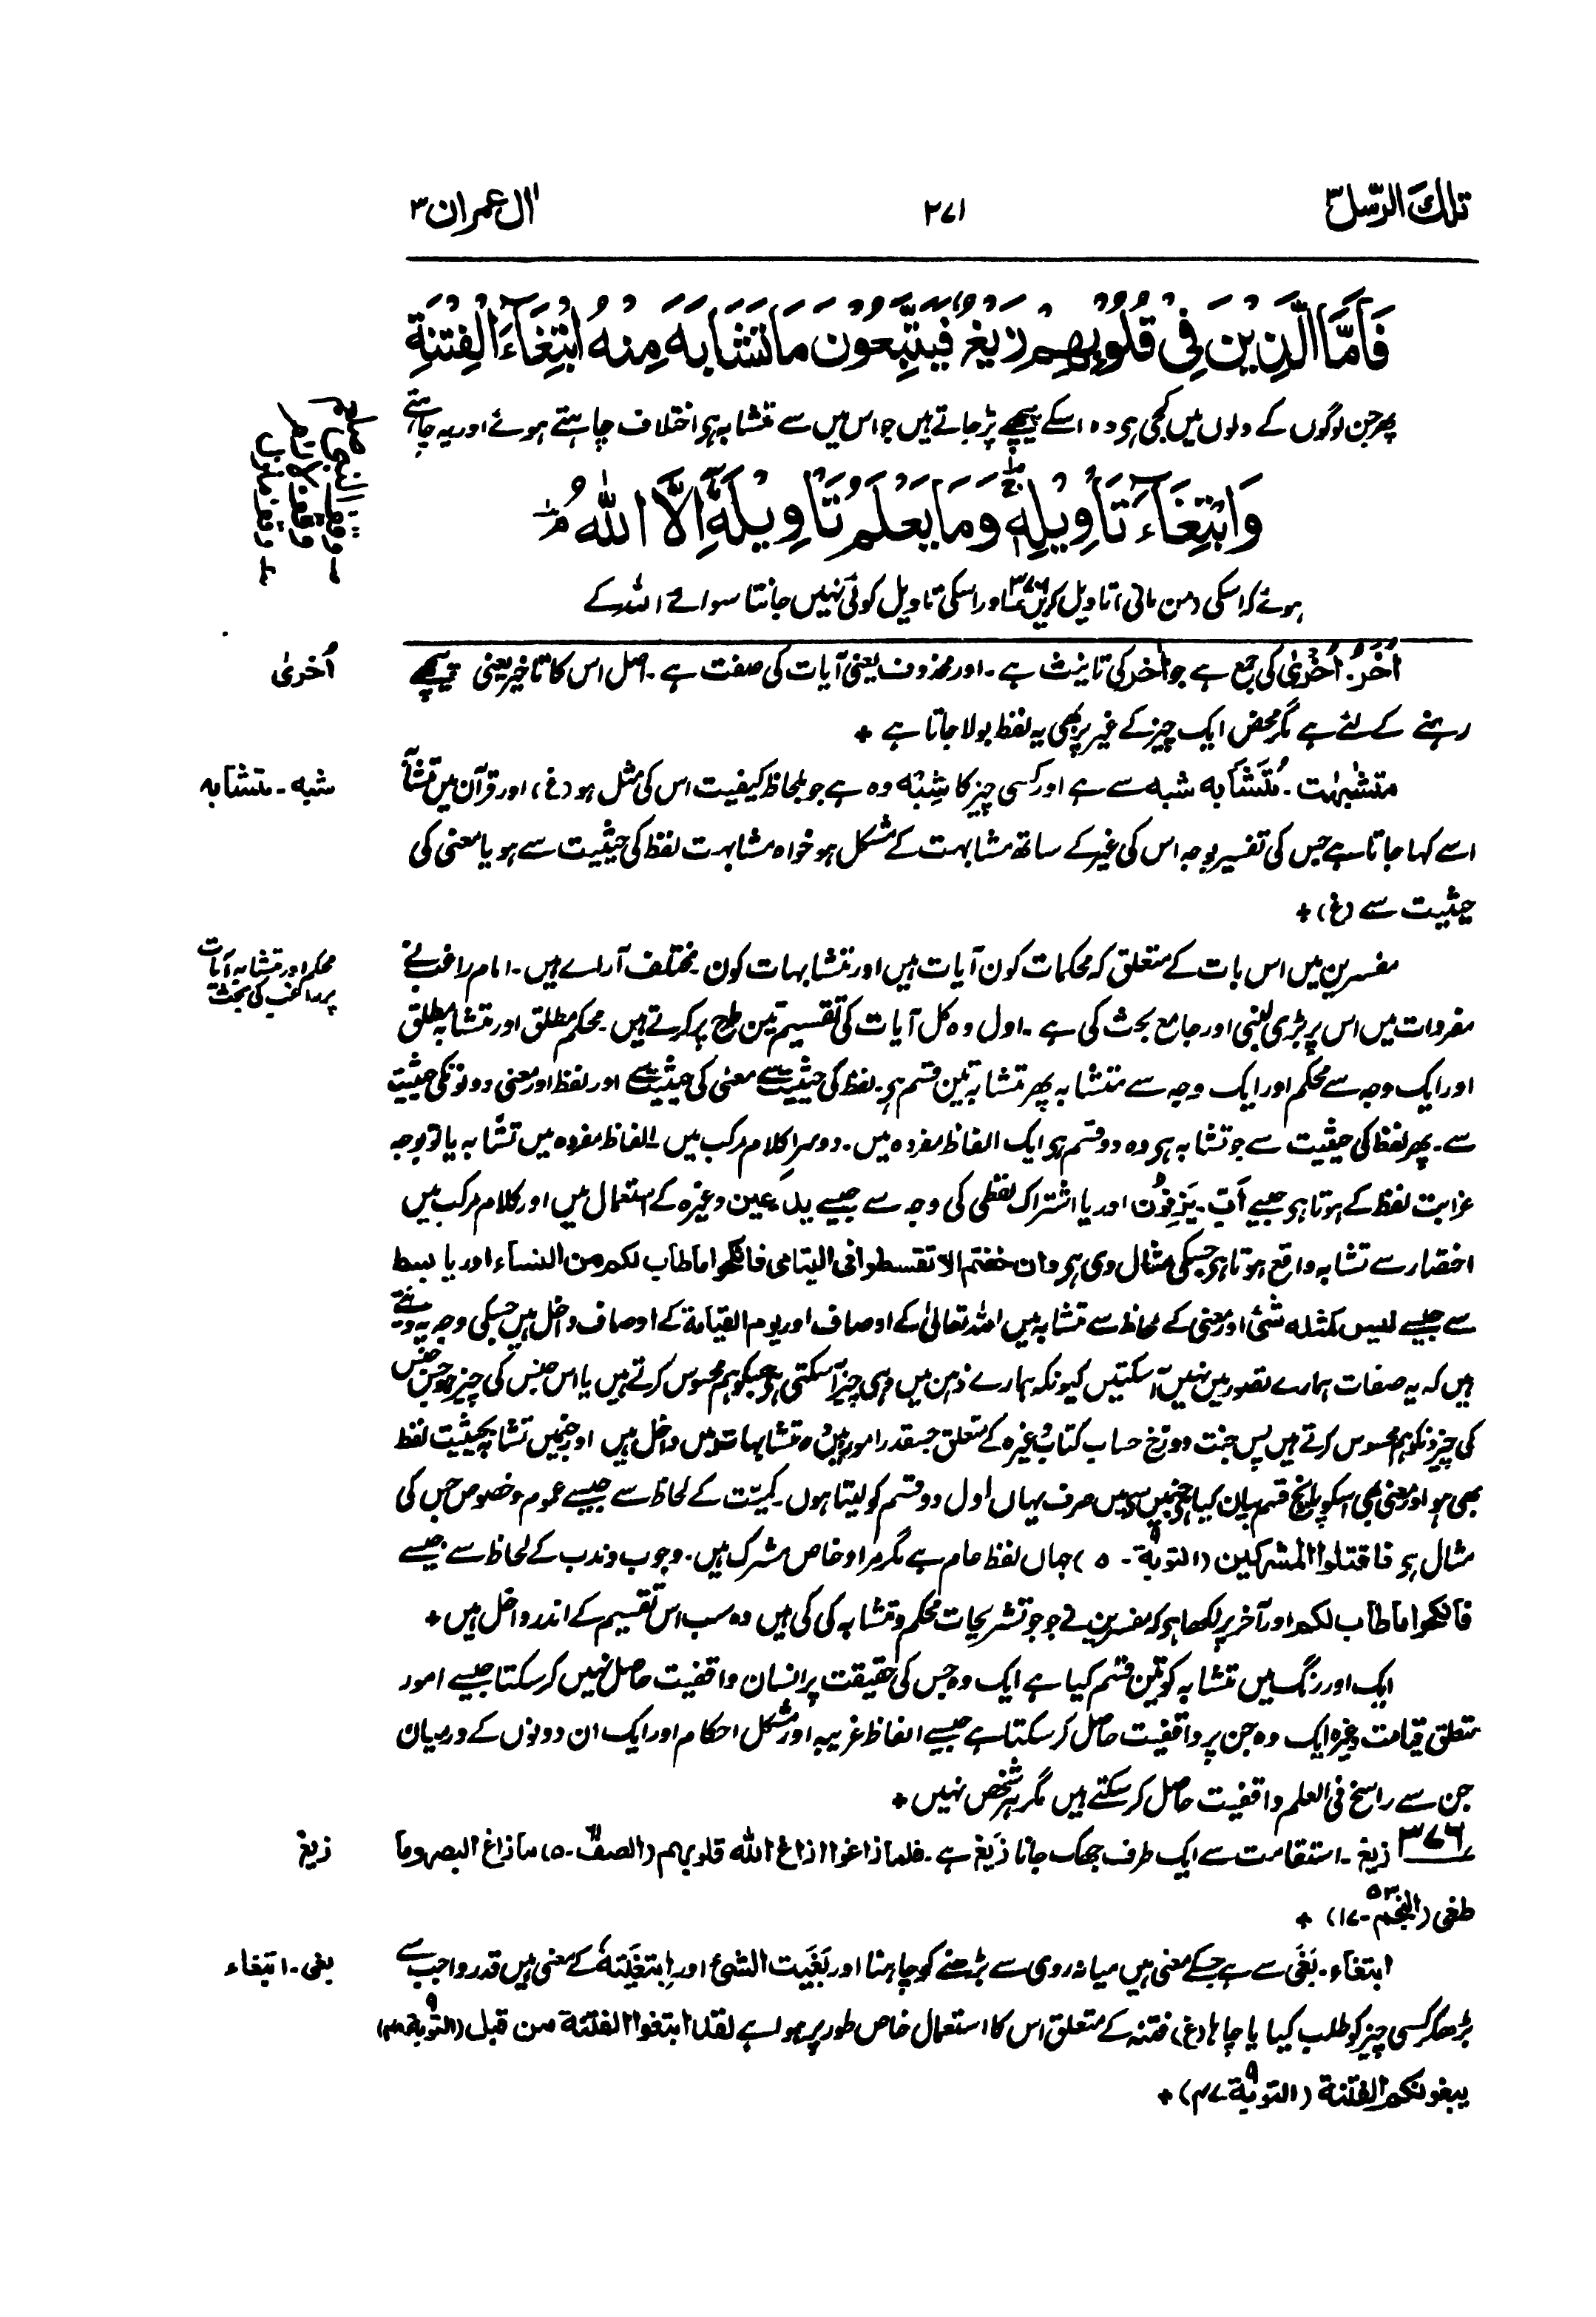 تلك الرّسل ٣
٢٧١
اٰل عمران ٣
فَاَمَّا الَّذِيْنَ فِيْ قُلُوْبِهِمْ زَيْغٌ فَيَتَّبِعُوْنَ مَا تَشَابَهَ مِنْهُ ابْتِغَآءَ الْفِتْنَةِ
پھر جن لوگوں کے دلوں میں کجی ہی وہ اسکے پیچھے پڑ جاتے ہیں جو اس میں سے متشابہ ہی اختلاف چاہتے ہوئے اور یہ چاہتے
وَابْتِغَآءَ تَاْوِيْلِهٖ ۚ وَمَا يَعْلَمُ تَاْوِيْلَهٗٓ اِلَّا اللّٰهُ ۘ
ہوئے کہ اسکی (من مانی) تاویل کریں ۳۷۶ اور اسکی تاویل کوئی نہیں جانتا سوائے اللہ کے
اُخَرُ. اُخْرٰی کی جمع ہے جو اٰخر کی تانیث ہے ۔ اور محذوف یعنی آیات کی صفت ہے ۔ اصل اس کا تاخیر یعنی پیچھے
اُخرىٰ
رہنے کے لئے ہے مگر محض ایک چیز کے غیر پر بھی یہ لفظ بولا جاتا ہے +
متشٰبہٰت ۔ مُتَشَابه شبه سے ہے اور کسی چیز کا شِبْه وہ ہے جو بلحاظ کیفیت اس کی مثل ہو (غ) اور قرآن میں متشابہ
شبه ۔ متشابه
اسے کہا جاتا ہے جس کی تفسیر بوجہ اس کی غیر کے ساتھ مشابہت کے مشکل ہو خواہ مشابہت لفظ کی حیثیت سے ہو یا معنی کی
حیثیت سے (غ) +
مفسرین میں اس بات کے متعلق کہ محکمات کون آیات ہیں اور متشابہات کون ۔ مختلف آراءے ہیں ۔ امام راغب نے
محکم اور متشابہ آیات
پر راغب کی بحث
مفردات میں اس پر بڑی لمبی اور جامع بحث کی ہے ۔ اول وہ کل آیات کی تقسیم تین طرح پر کرتے ہیں ۔ محکم مطلق اور متشابہ مطلق
اور ایک وجہ سے محکم اور ایک وجہ سے متشابہ پھر متشابہ تین قسم ہی ۔ لفظ کی حیثیت سے معنی کی حیثیت سے اور لفظ اور معنی دونوں کی حیثیت
سے ۔ پھر لفظ کی حیثیت سے جو تشابہ ہی وہ دو قسم ہی ایک الفاظ مفردہ میں ۔ دوسرا کلام مرکب میں ۔ الفاظ مفردہ میں تشابہ یا تو بوجہ
غرابت لفظ کے ہوتا ہی جیسے اَبّ ۔ یَزِفُّون اور یا اشتراک لفظی کی وجہ سے جیسے ید ۔ عین وغیرہ کے استعمال میں اور کلام مرکب میں
اختصار سے تشابہ واقع ہوتا ہی جسکی مثال دی ہی وان خفتم الا تقسطوا فی الیتامی فانکحوا ما طاب لکم من النساء اور یا بسط
سے جیسے لیس کمثله شئ اور معنی کے لحاظ سے متشابہ میں اللہ تعالیٰ کے اوصاف اور یوم القیامۃ کے اوصاف داخل ہیں جسکی وجہ یہ دیتے
ہیں کہ یہ صفات ہمارے تصور میں نہیں آ سکتیں کیونکہ ہمارے ذہن میں وہی چیز آ سکتی ہی جسکو ہم محسوس کرتے ہیں یا اس جنس کی چیز ہو جس جنس
کی چیزونکو ہم محسوس کرتے ہیں پس جنت دوزخ حساب کتاب وغیرہ کے متعلق جسقدر امور ہیں وہ متشابہات میں داخل ہیں اور جنمیں تشابہ بحیثیت لفظ
بھی ہو اور معنی بھی اسکو پانچ قسم بیان کیا ہی جنمیں سے میں صرف یہاں اول دو قسم کو لیتا ہوں ۔ کمیّت کے لحاظ سے جیسے عموم وخصوص جس کی
مثال ہی فاقتلوا المشرکین (التوبۃ ۹ - ۵) جہاں لفظ عام ہے مگر مراد خاص مشرک ہیں ۔ وجوب وندب کے لحاظ سے جیسے
فانکحوا ما طاب لکم اور آخر پر لکھا ہی کہ مفسرین نے جو جو تشریحات محکم و متشابہ کی کی ہیں وہ سب اس تقسیم کے اندر داخل ہیں +
ایک اور رنگ میں متشابہ کو تین قسم کیا ہے ایک وہ جس کی حقیقت پر انسان واقفیت حاصل نہیں کر سکتا جیسے امور
متعلق قیامت وغیرہ ایک وہ جن پر واقفیت حاصل کر سکتا ہے جیسے الفاظ غریبہ اور مشکل احکام اور ایک ان دونوں کے درمیان
جن سے راسخ فی العلم واقفیت حاصل کر سکتے ہیں مگر ہر شخص نہیں +
۳۷۶ زیغ ۔ استقامت سے ایک طرف جھک جانا زَیغ ہے ۔ فلما زاغوا ازاغ الله قلوبهم (الصف ۶۱ - ۵) ما زاغ البصر وما
زیغ
طغی (النجم ۵۳ - ۱۷) +
ابتغاء ۔ بَغَی سے ہے جسکے معنی ہیں میانہ روی سے بڑھنے کو چاہنا اور بَغَیت الشئ اور اِبتغَیتهٗ کے معنی ہیں قدر واجب سے
بغی ۔ ابتغاء
بڑھکر کسی چیز کو طلب کیا یا چاہا (غ) فتنہ کے متعلق اس کا استعمال خاص طور پر ہوا ہے لقد ابتغوا الفتنة من قبل (التوبة ۹ - ۴۸)
یبغونکم الفتنة (التوبة ۹ - ۴۷) +